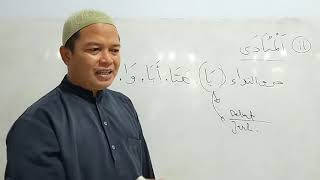 ١١ اَلْمُنَادَى
حرف النداء (يَا) هَيَا، أَيَا، وَا
Dekat
Jauh.